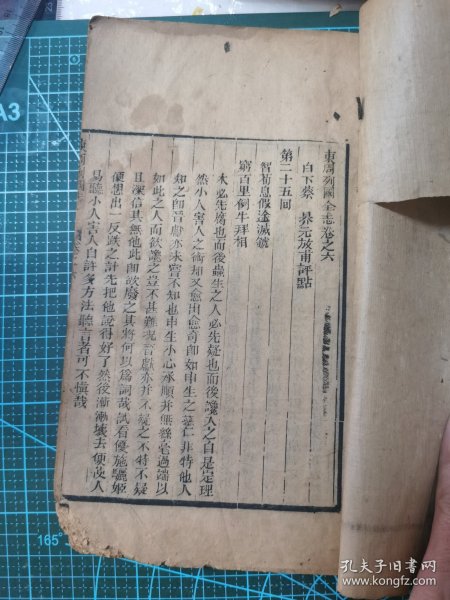 東周列國全志卷之六
白下蔡 昇元放甫評點
第二十五回
智荀息假途滅虢
窮百里飼牛拜相
木必先腐也而後蟲生之人必先疑也而後讒人之自是定理
然小人害人之術却又愈出愈奇即如申生之慈仁非特他人
知之即晉獻亦未嘗不知也申生小心承順并無絲毫過端以
如此之人而欲讒之豈不甚難况晉獻亦并不疑之不特不疑
且深信其無他此即欲廢之其將何以為詞哉試看優施驪姬
便想出一反跌之計先把他說得好了然後漸漸壞去便改人
易聽小人害人自許多方法聽言者可不慎哉
A3
165
孔夫子旧书网
www.kongfz.com